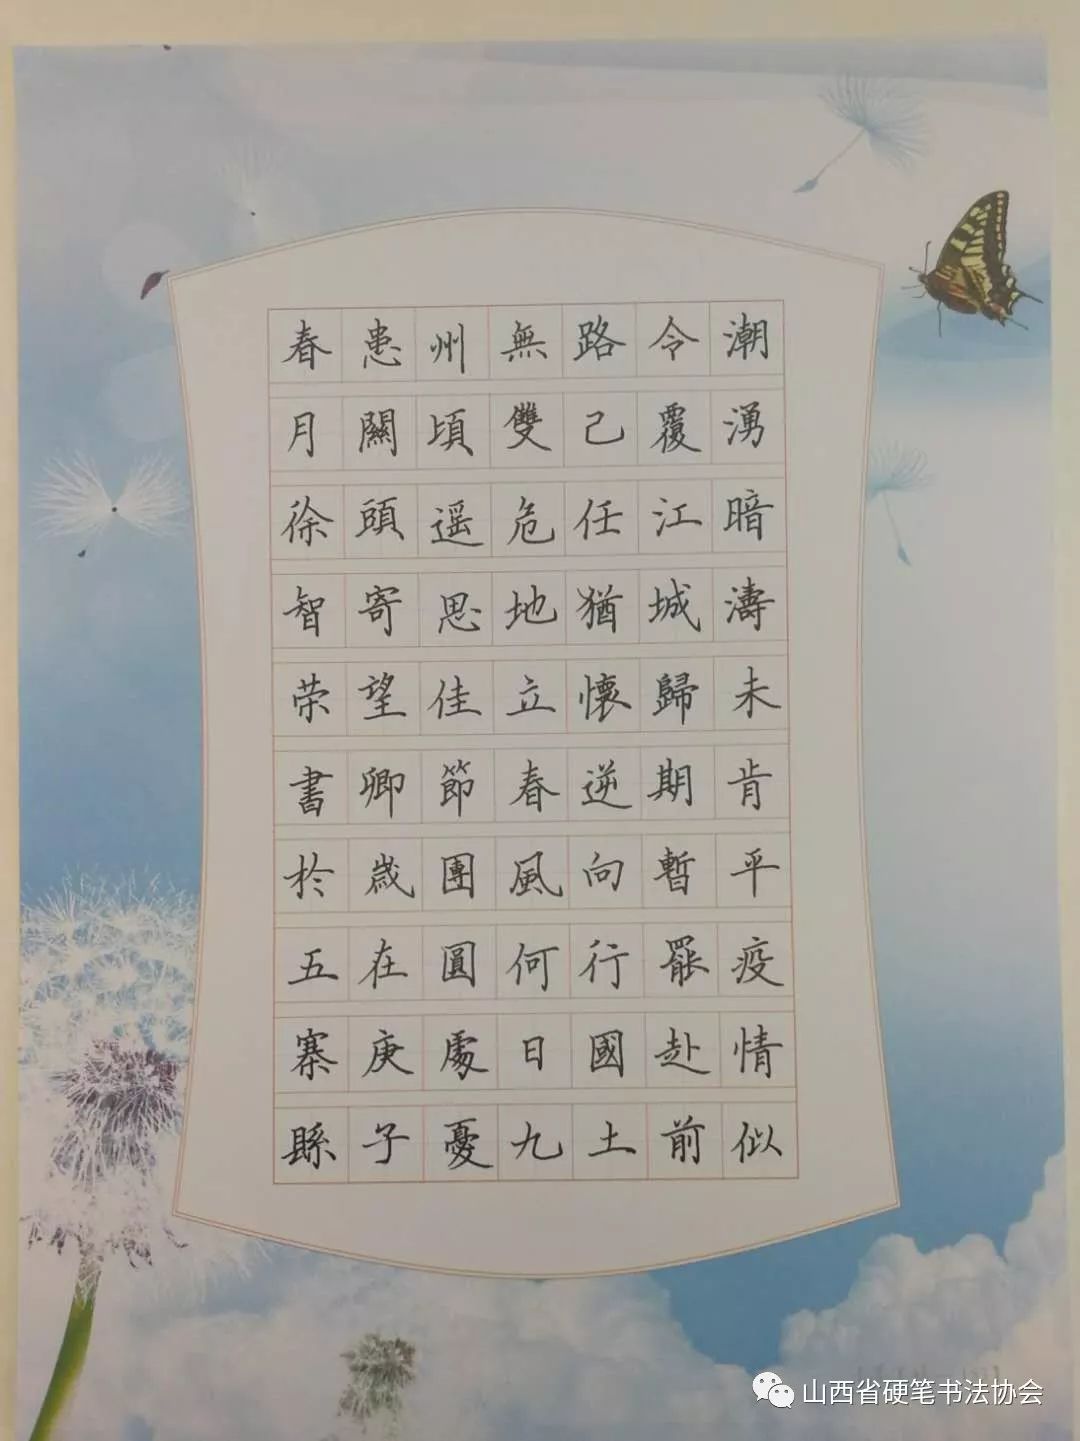 潮湧暗濤未肯平疫情似
令覆江城歸期暫罷赴前
路己任猶懷逆向行國土
無雙危地立春風何日九
州頃遥思佳節團圓處憂
患關頭寄望卿歲在庚子
春月徐智荣書於五寨縣
山西省硬笔书法协会